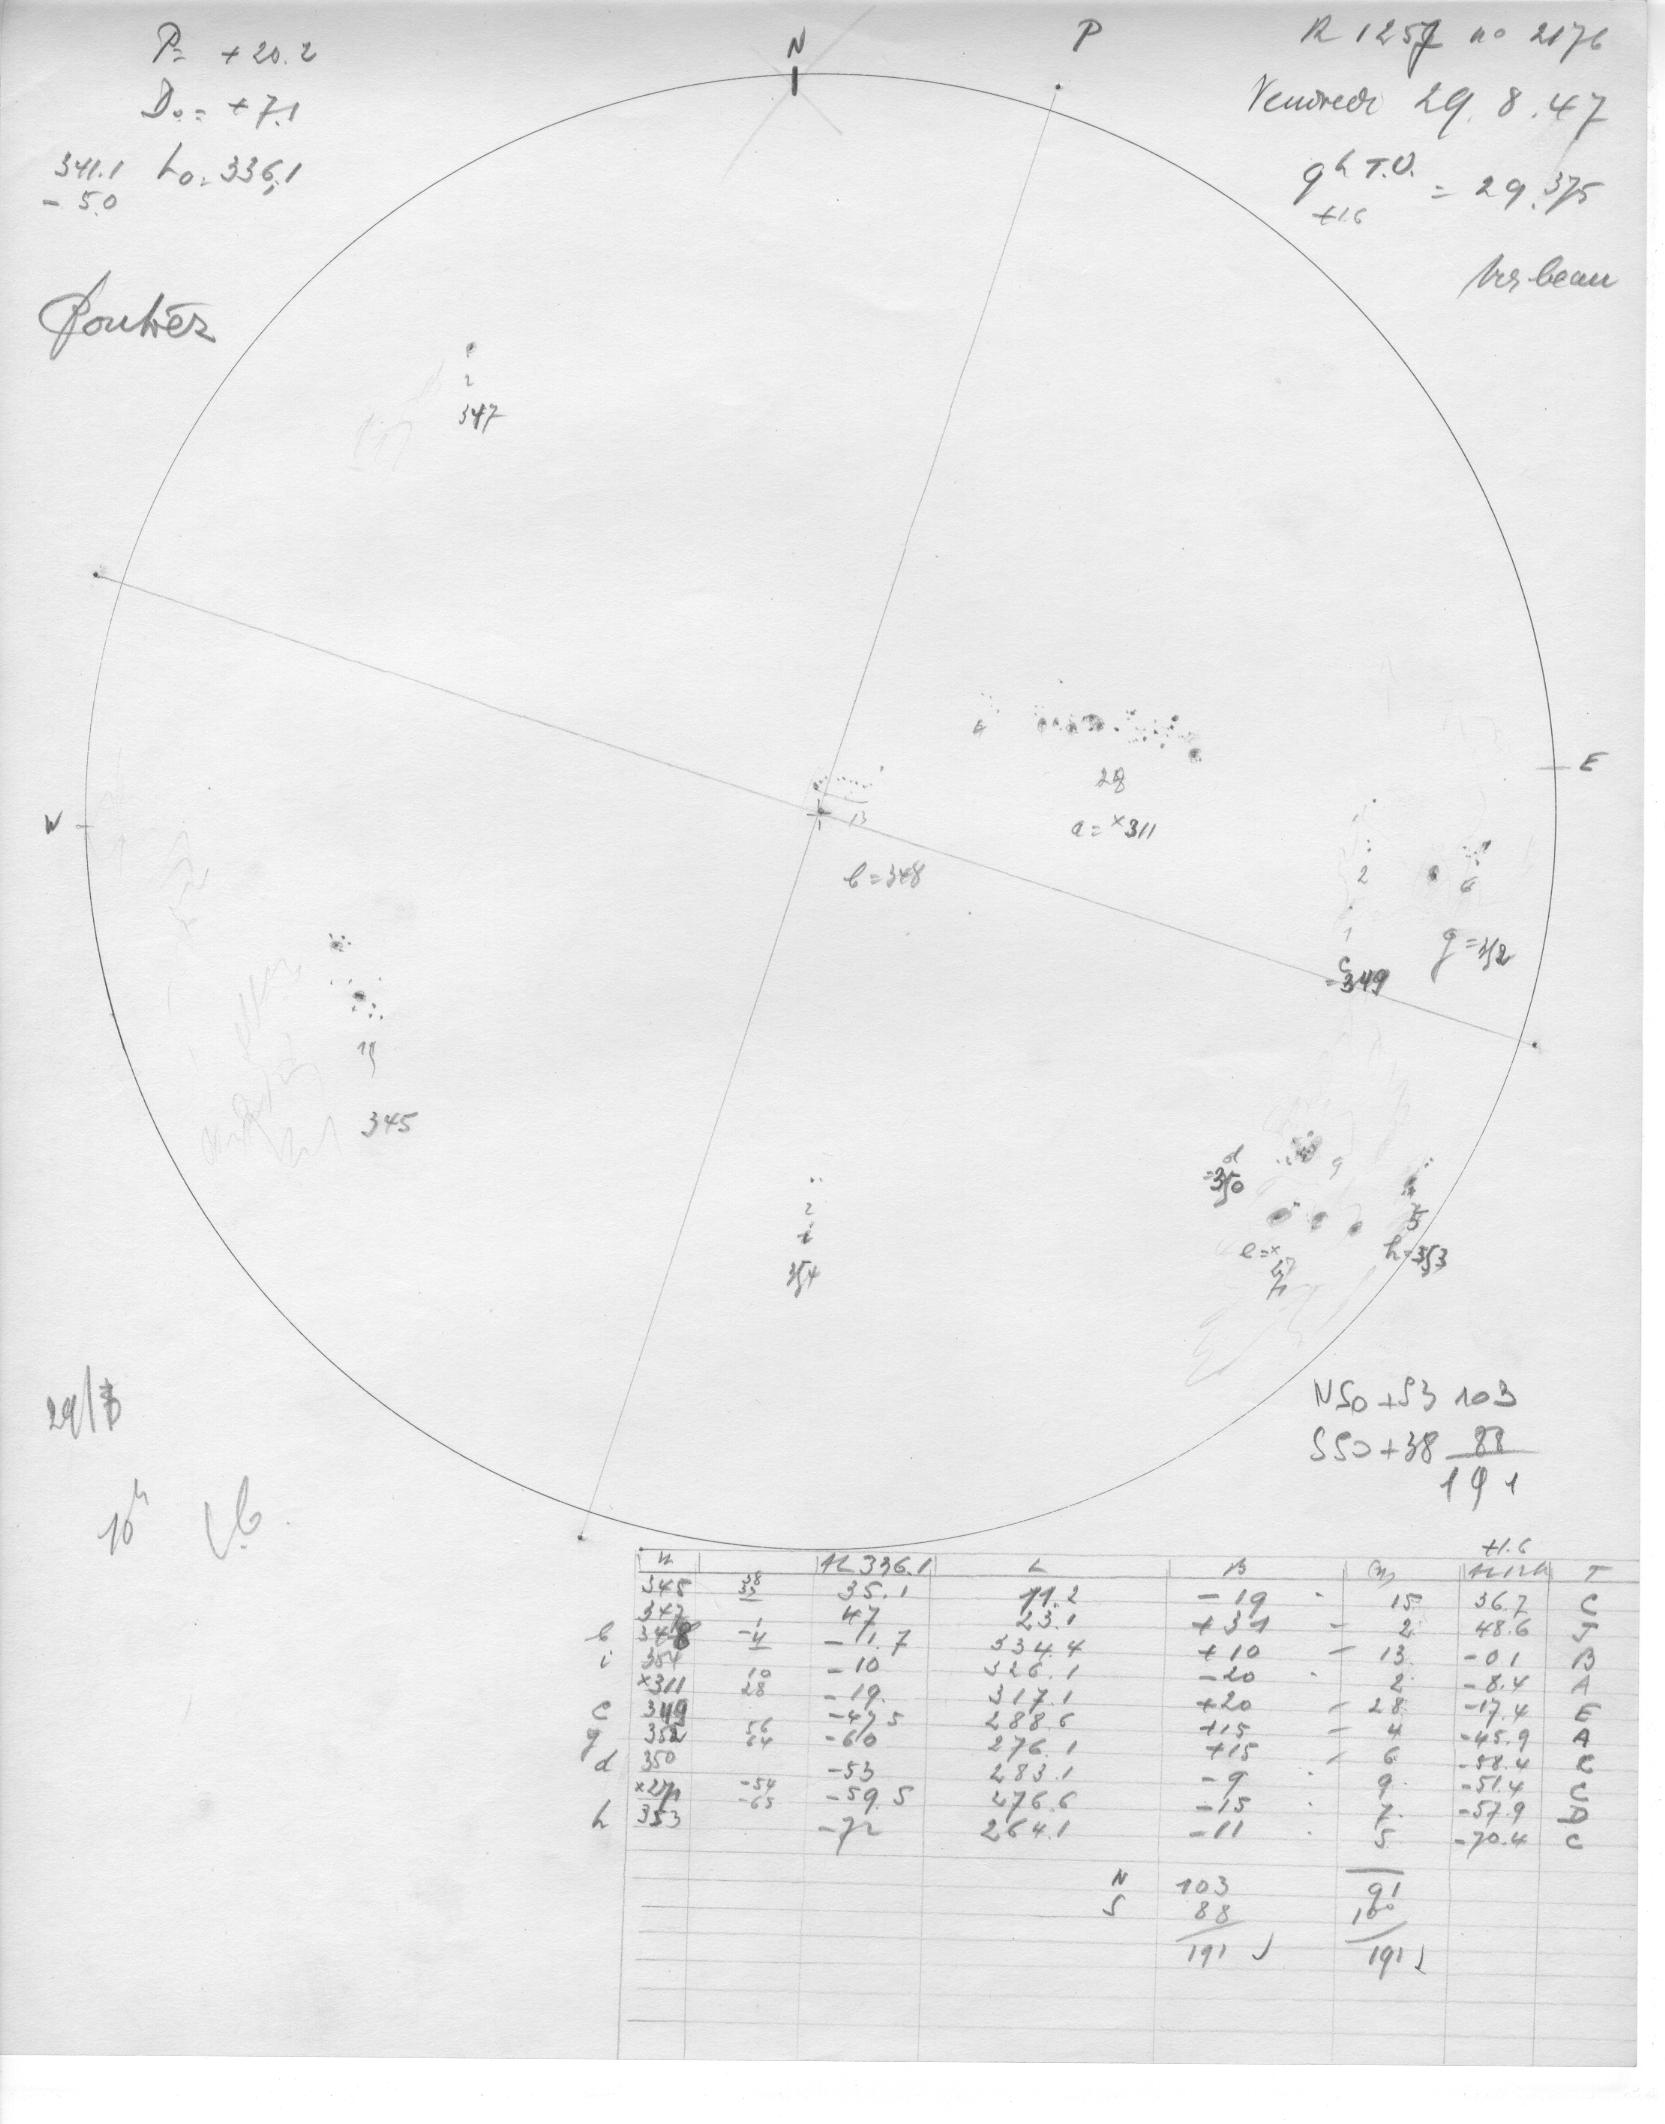 P= +20.2
D₀= +7.1
341.1 L₀= 336,1
- 5.0
N
P
R 1257 no 2176
Vendredi 29.8.47
9h T.U. = 29.375
+1.6
très beau
347
2
E
W
28
a=x311
13
b=348
2
6
1
g=352
c
=349
345
d
=350
9
5
h=353
e=x
2
i
354
29/8
10h
N50+53 103
S50+38 88
191
+1.6
336.1 L B T
345 38 35.1 11.2 -19 15 36.7 C
347 47 23.1 +31 2 48.6 J
b 348 -1.7 334.4 +10 13 -01 B
i 354 -10 326.1 -20 2 -8.4 A
x311 10 28 -19 317.1 +20 28 -17.4 E
c 349 -47.5 288.6 +15 4 -45.9 A
g 352 56 64 -60 276.1 +15 6 -58.4 C
d 350 -53 283.1 -9 9 -51.4 C
-54 -65 -59.5 276.6 -15 7 -57.9 D
h 353 -72 264.1 -11 5 -70.4 C
N 103 91
S 88 100
191 191